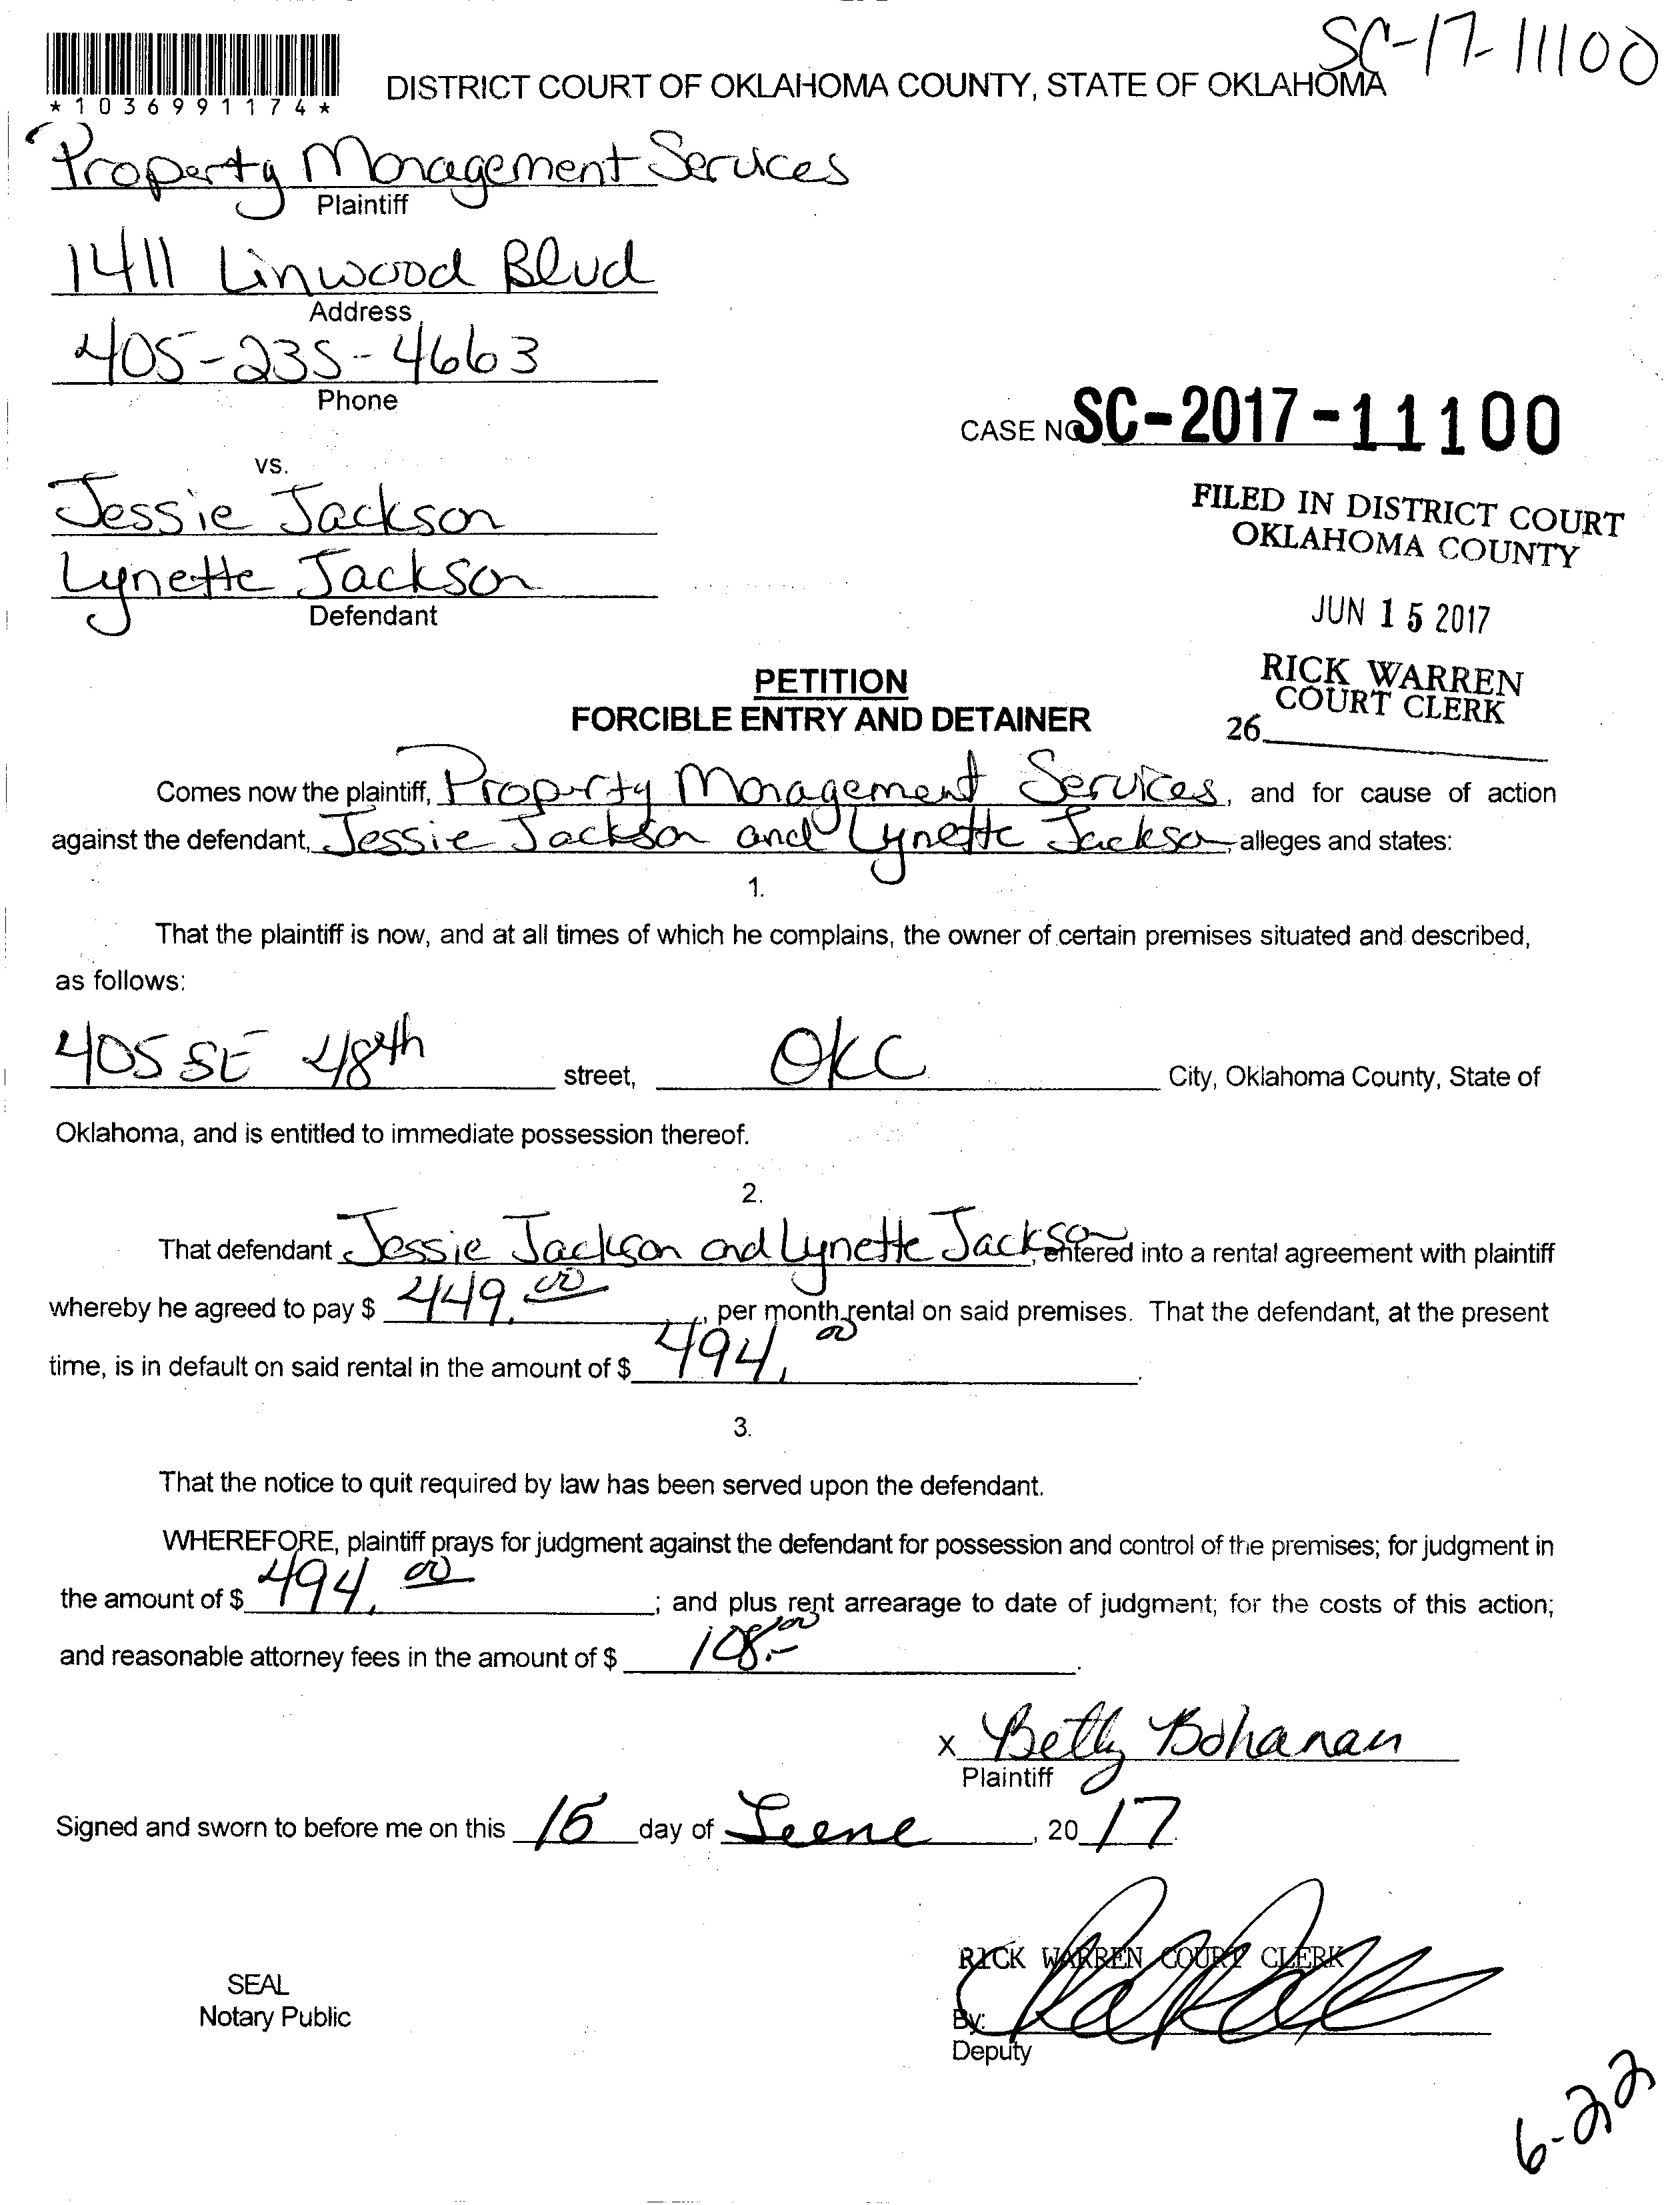 SC-17-11100
*1036991174*
DISTRICT COURT OF OKLAHOMA COUNTY, STATE OF OKLAHOMA
Property Management Services
Plaintiff
1411 Linwood Blvd
Address
405-235-4663
Phone
CASE NO SC-2017-11100
vs.
Jessie Jackson
Lynette Jackson
Defendant
FILED IN DISTRICT COURT
OKLAHOMA COUNTY
JUN 15 2017
RICK WARREN
COURT CLERK
26
PETITION
FORCIBLE ENTRY AND DETAINER
Comes now the plaintiff, Property Management Services, and for cause of action
against the defendant, Jessie Jackson and Lynette Jackson, alleges and states:
1.
That the plaintiff is now, and at all times of which he complains, the owner of certain premises situated and described,
as follows:
405 SE 48th street, OKC City, Oklahoma County, State of
Oklahoma, and is entitled to immediate possession thereof.
2.
That defendant Jessie Jackson and Lynette Jackson, entered into a rental agreement with plaintiff
whereby he agreed to pay $ 449.00, per month rental on said premises. That the defendant, at the present
time, is in default on said rental in the amount of $ 494.00.
3.
That the notice to quit required by law has been served upon the defendant.
WHEREFORE, plaintiff prays for judgment against the defendant for possession and control of the premises; for judgment in
the amount of $ 494.00; and plus rent arrearage to date of judgment; for the costs of this action;
and reasonable attorney fees in the amount of $ 108.00.
x Betty Bohanan
Plaintiff
Signed and sworn to before me on this 15 day of June, 2017.
RICK WARREN COURT CLERK
SEAL
Notary Public
By:
Deputy
6-22